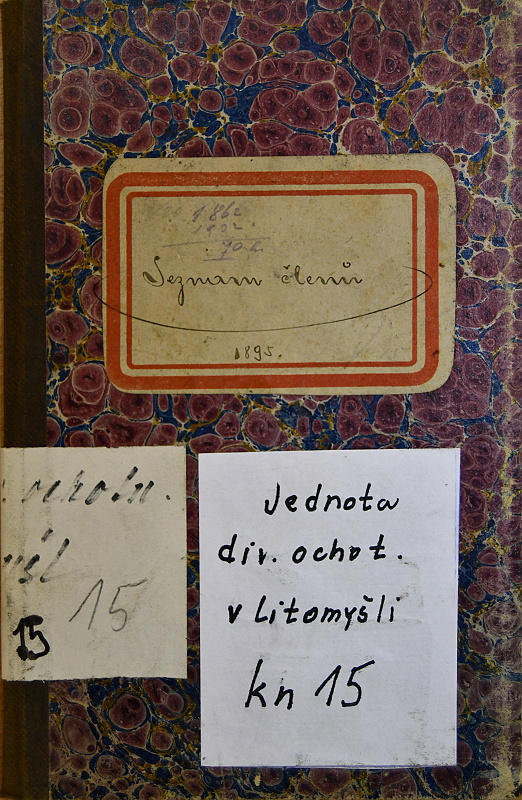 1862
1932
70 l.
Seznam členů
1895.
ochotn.
15
15
Jednota
div. ochot.
v Litomyšli
kn 15